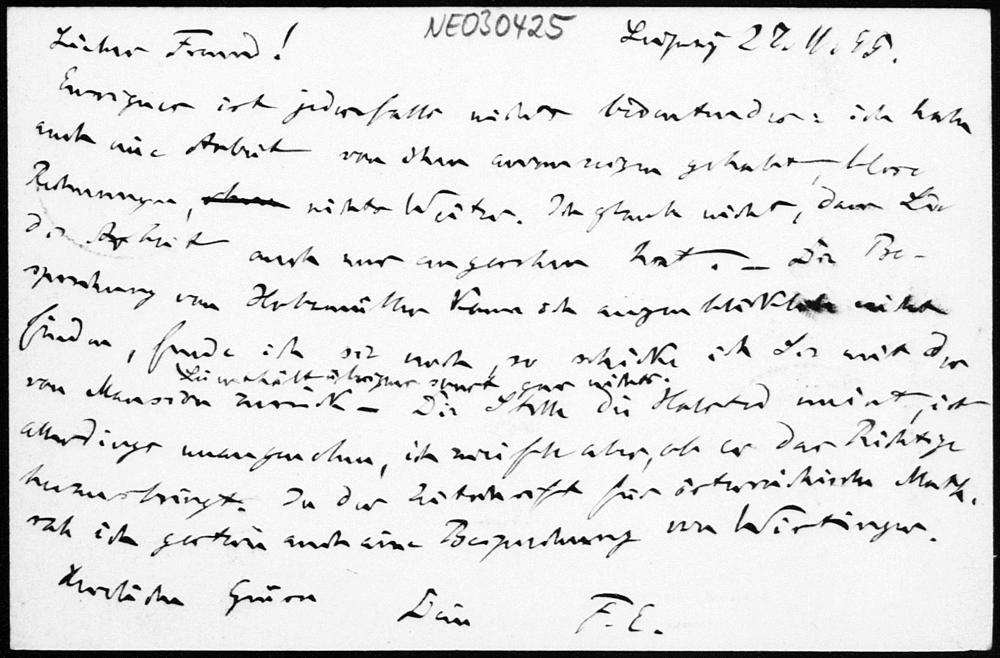 NE030425
Lieber Freund! Leipzig 27. 11. 95.
ist jedenfalls nichts bedeutender: ich habe
auch eine Arbeit von ihm anzuzeigen gehabt, blose
Rechnungen, nichts Weiter. Ich glaube nicht, dass Lie
die Arbeit auch nur angesehen hat. — Die Be-
sprechung von Holzmüller kann ich augenblicklich nicht
finden, finde ich sie noch, so schicke ich sie mit der
Sie enthält übrigens sonst gar nichts.
von Mansion zurück — Die Stelle die Halsted meint, ist
allerdings unangenehm, ich zweifle aber, ob er das Richtige
herausbringt. In der Zeitschrift für österreichische Math.
sah ich gestern auch eine Besprechung von Wirtinger.
Herzliche Grüsse Dein F. E.